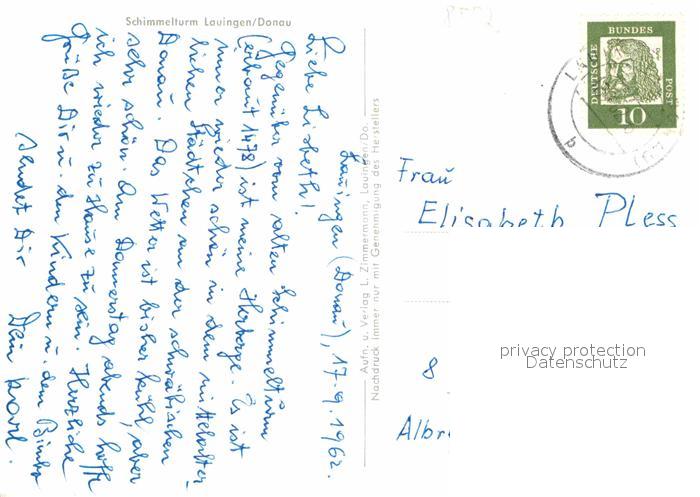 Schimmelturm Lauingen/Donau
Lauingen (Donau), 17.9.1962.
Liebe Lisbeth!
Gegenüber vom alten Schimmelturm
(erbaut 1478) ist meine Herberge. Es ist
immer wieder schön in dem mittelalter-
lichen Städtchen an der schwäbischen
Donau. Das Wetter ist bisher kühl, aber
sehr schön. Am Donnerstag abends hoffe
ich wieder zu Hause zu sein. Herzliche
Grüße Dir u. den Kindern u. dem
sendet Dir
Dein Karl.
Aufn. u. Verlag L. Zimmermann, Lauingen/Do.
Nachdruck immer nur mit Genehmigung des Herstellers
DEUTSCHE BUNDES POST
10
b
Frau
Elisabeth Pless
8
Albr
privacy protection
Datenschutz